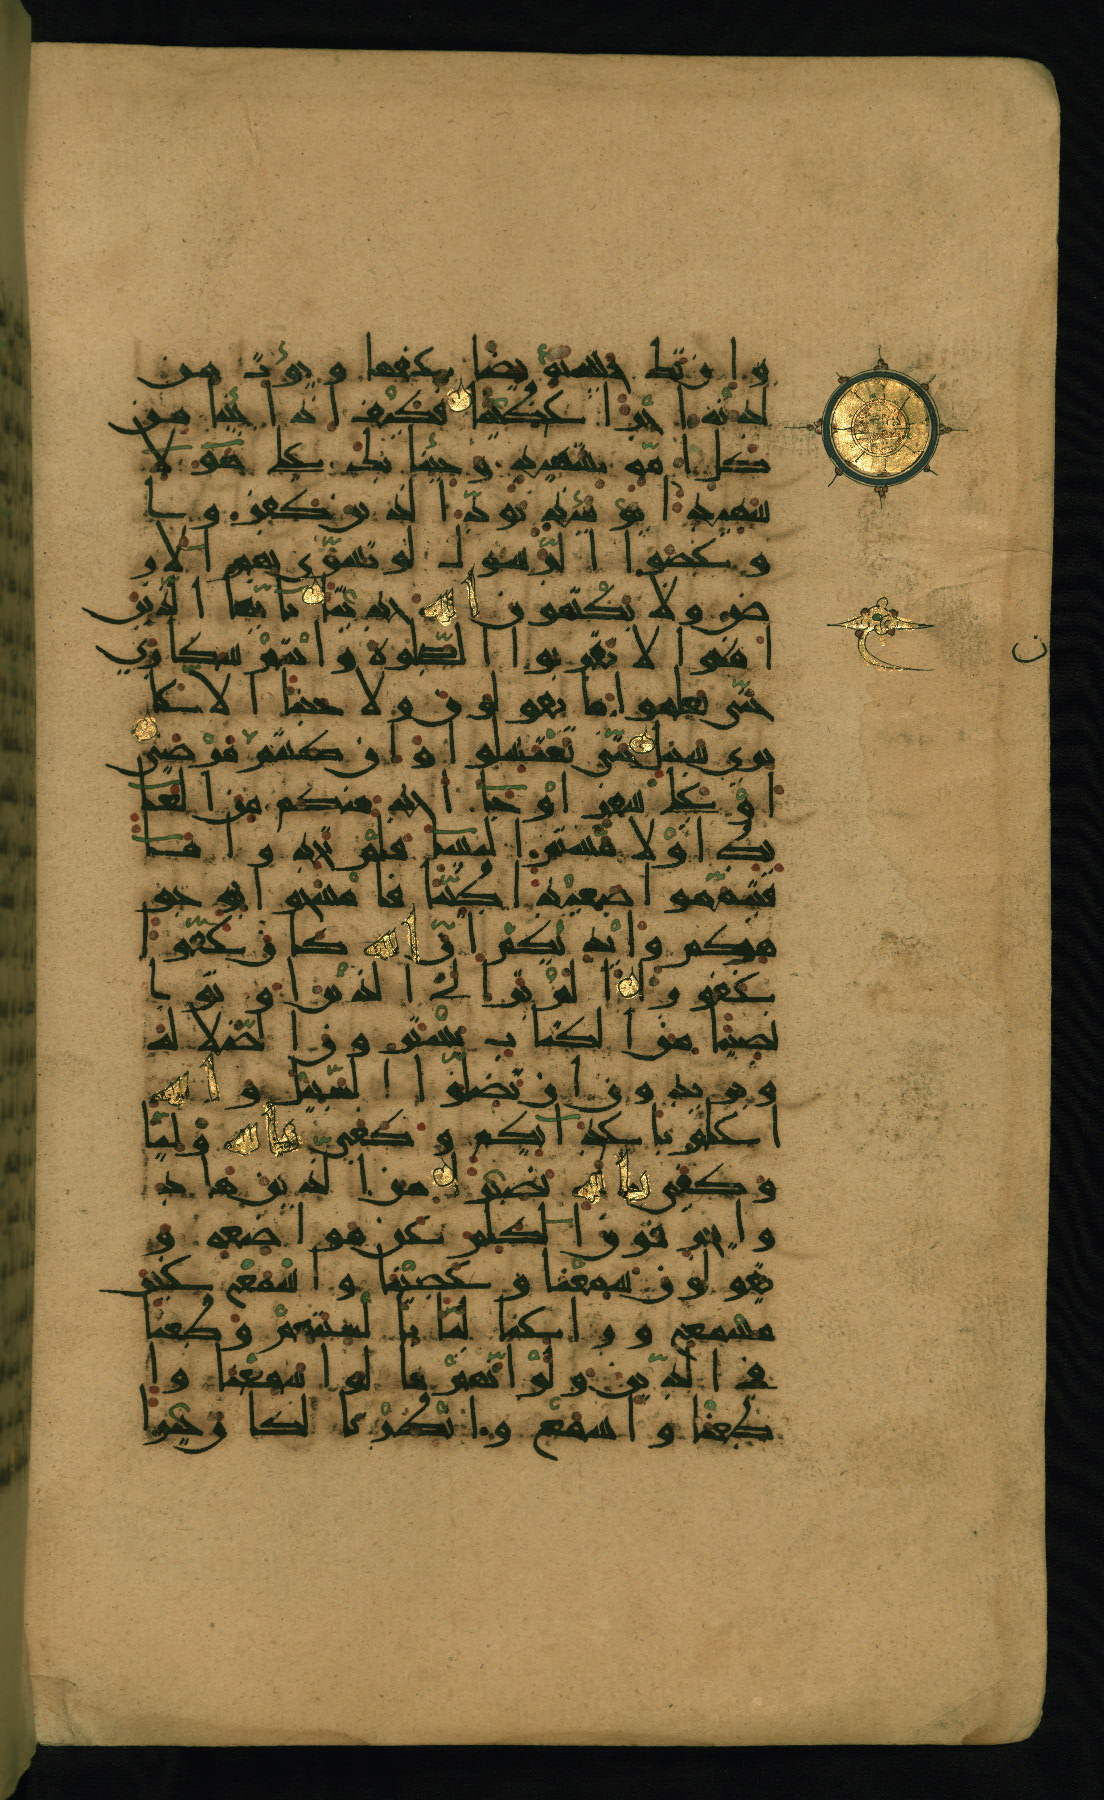 وان تك حسنة يضاعفها ويؤت من
لدنه اجرا عظيما فكيف اذا جئنا من
كل امة بشهيد وجئنا بك على هؤلا
شهيدا يومئذ يود الذين كفروا
وعصوا الرسول لو تسوى بهم الار
ض ولا يكتمون الله حديثا يايها الذين
امنوا لا تقربوا الصلوة وانتم سكارى
حتى تعلموا ما تقولون ولا جنبا الا عا
برى سبيل حتى تغتسلوا وان كنتم مرضى
او على سفر او جا احد منكم من الغا
يط او لامستم النسا فلم تجدوا ما
فتيمموا صعيدا طيبا فامسحوا بوجو
هكم وايديكم ان الله كان عفوا
غفورا الم تر الى الذين اوتوا
نصيبا من الكتاب يشترون الضلالة
ويريدون ان تضلوا السبيل والله
اعلم باعدائكم وكفى بالله وليا
وكفى بالله نصيرا من الذين هاد
وا يحرفون الكلم عن مواضعه و
يقولون سمعنا وعصينا واسمع غير
مسمع وراعنا ليا بالسنتهم وطعنا
فى الدين ولو انهم قالوا سمعنا وا
طعنا واسمع وانظرنا لكان خيرا
ن